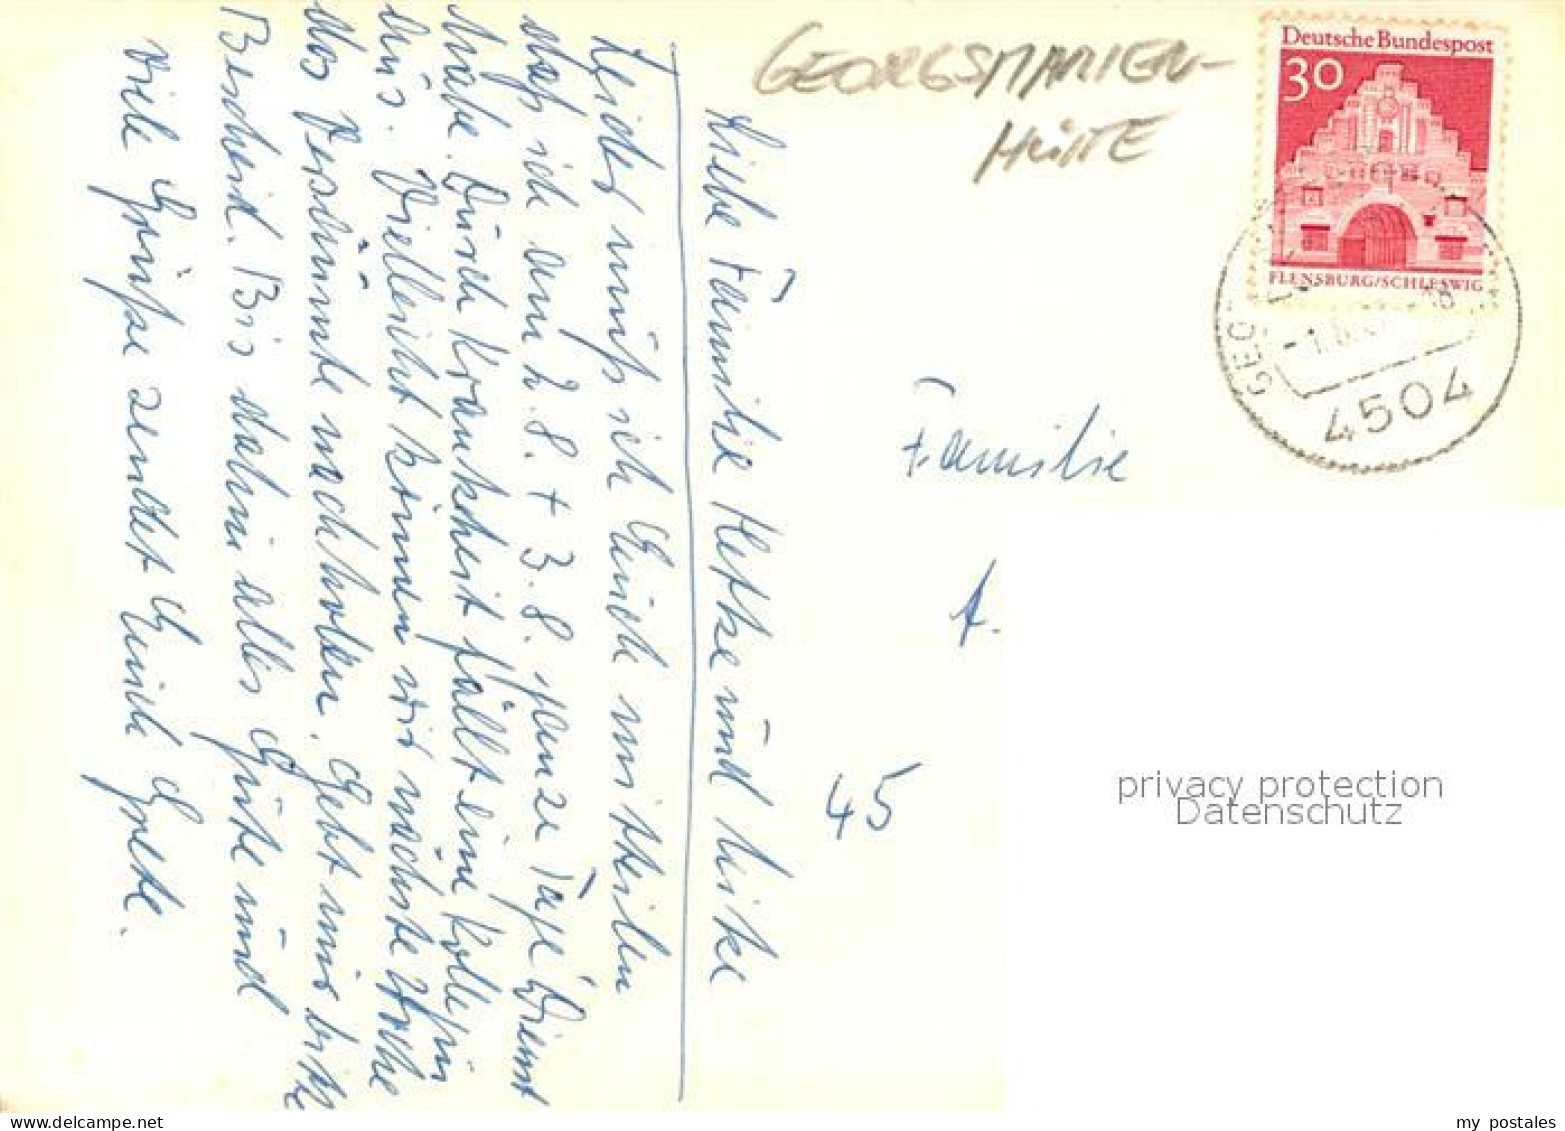 GEORGSMARIEN-
HÜTTE
Deutsche Bundespost
30
FLENSBURG/SCHLESWIG
4504
Liebe Familie Hetke und Heike
Leider muß ich Euch mitteilen
daß ich am 2.8. + 3.8. ganze Tage Dienst
habe. Durch Krankheit fällt eine Kollegin
aus. Vielleicht können wir nächste Woche
das Versäumte nachholen. Gebt mir bitte
Bescheid. Bis dahin alles Gute und
viele Grüße sendet Euch Grete.
Familie
A.
45
privacy protection
Datenschutz
my postales